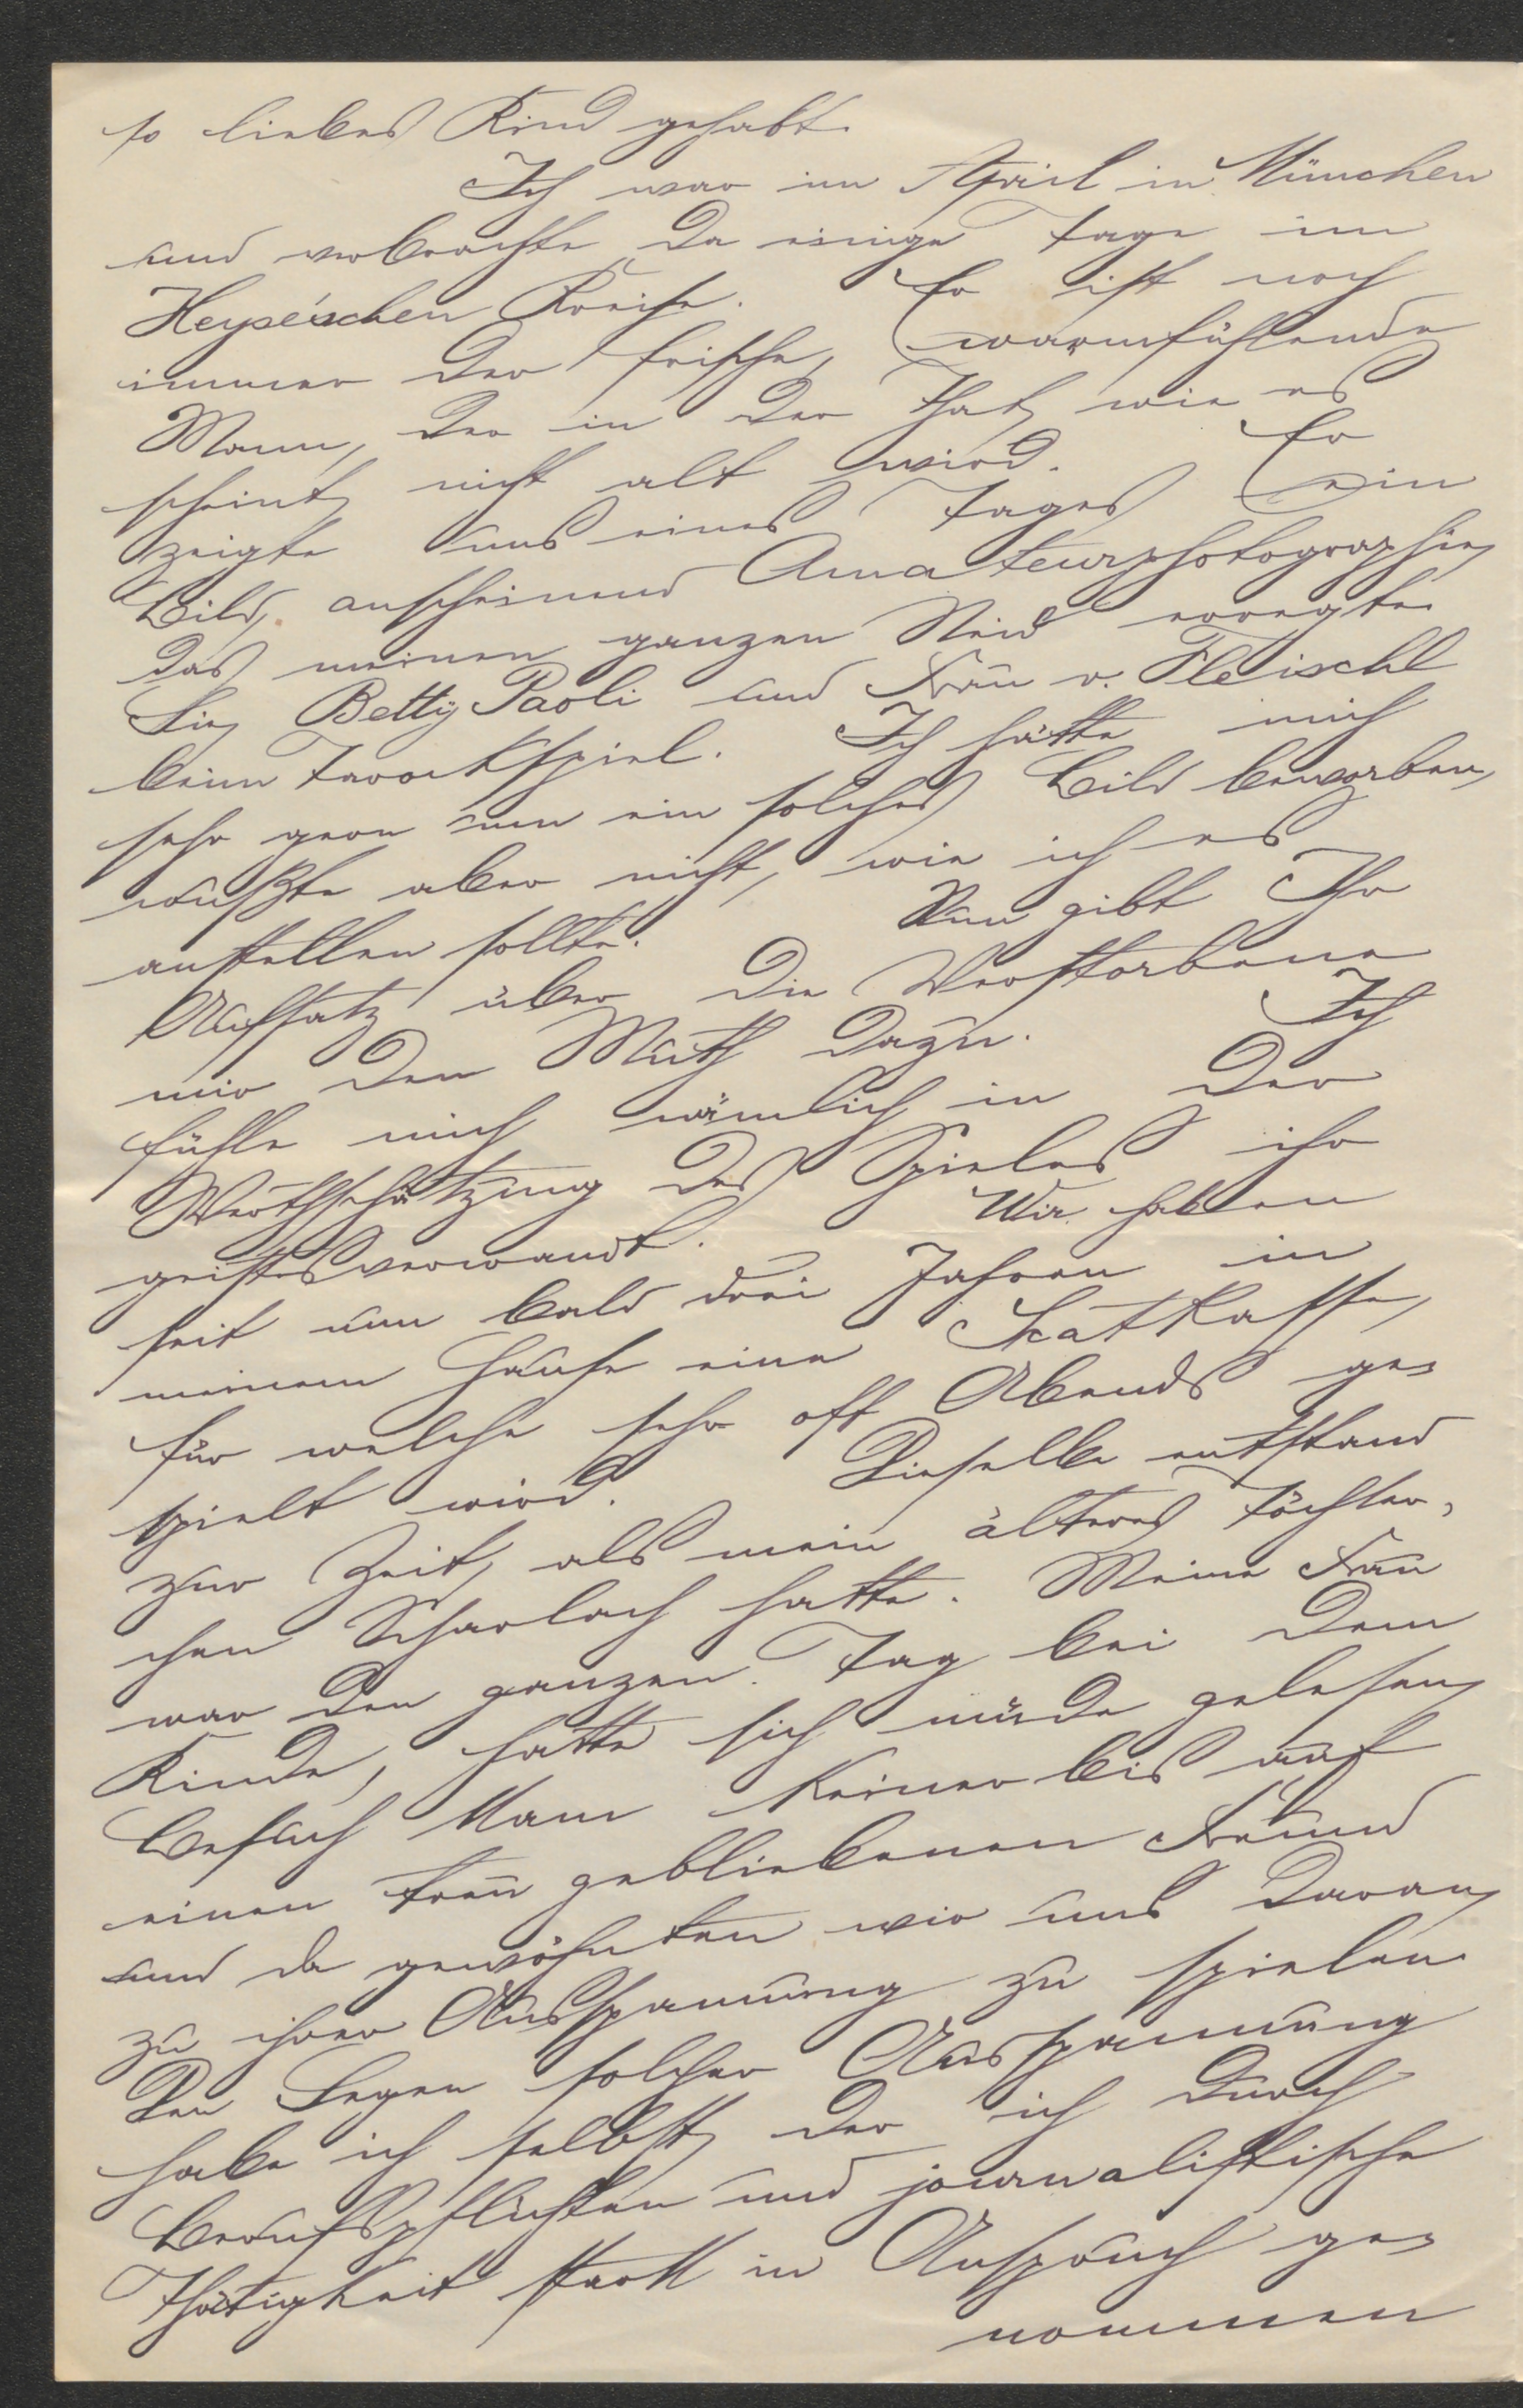 so liebes Kind gehabt.
Ich war im April in München
und verbrachte da einige Tage im
Heyse'schen Kreise. Er ist noch
immer der frische, warmfühlende
Mann, der in der That, wie es
scheint, nicht alt wird. Er
zeigte uns eines Tages ein
Bild, anscheinend Amateurphotographie,
das meinen ganzen Neid erregte.
Sie, Betty Paoli und Frau v. Fleischl
beim Tarockspiel. Ich hätte mich
sehr gern um ein solches Bild beworben,
wußte aber nicht, wie ich es
anstellen sollte. Nun gibt Ihr
Aufsatz über die Verstorbene
mir den Muth dazu. Ich
fühle mich nämlich in der
Werthschätzung des Spieles ihr
geistesverwandt. Wir haben
seit nun bald drei Jahren in
meinem Hause eine Skatkasse,
für welche sehr oft Abends ge-
spielt wird. Dieselbe entstand
zur Zeit, als mein älteres Töchter-
chen Scharlach hatte. Meine Frau
war den ganzen Tag bei dem
Kinde, hatte sich müde gelesen,
Besuch kam keiner bis auf
einen treu gebliebenen Freund
und da gewöhnten wir uns daran,
zu ihrer Ausspannung zu spielen.
Den Segen solcher Ausspannung
habe ich selbst, der ich durch
Berufspflichten und journalistische
Thätigkeit stark in Anspruch ge-
nommen